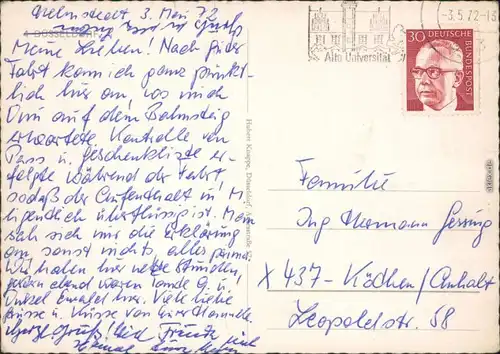 Helmstedt 3. Mai 72
4 DÜSSELDORF
Meine Lieben! Nach guter
Fahrt kam ich ganz pünkt-
lich hier an, wo mich
Omi auf dem Bahnsteig
erwartete. Kontrolle von
Pass u. Geschenkliste er-
folgte während der Fahrt,
sodaß der Aufenthalt in M.
eigentlich überflüssig ist. Man
sah sich nur die Erklärung
an, sonst nichts, alles prima.
Wir haben hier nette Stunden,
gestern abend waren Tante G. u.
Onkel Ewald hier. Viele liebe
Grüsse u. Küsse von Eurer
Herzl. Gruß!
Hubert Knappe, Düsseldorf,
Alte Universität
-3.5.72-
30
DEUTSCHE
BUNDESPOST
Familie
Ing. Hermann
X 437-Köthen/Anhalt
Leopoldstr. 58